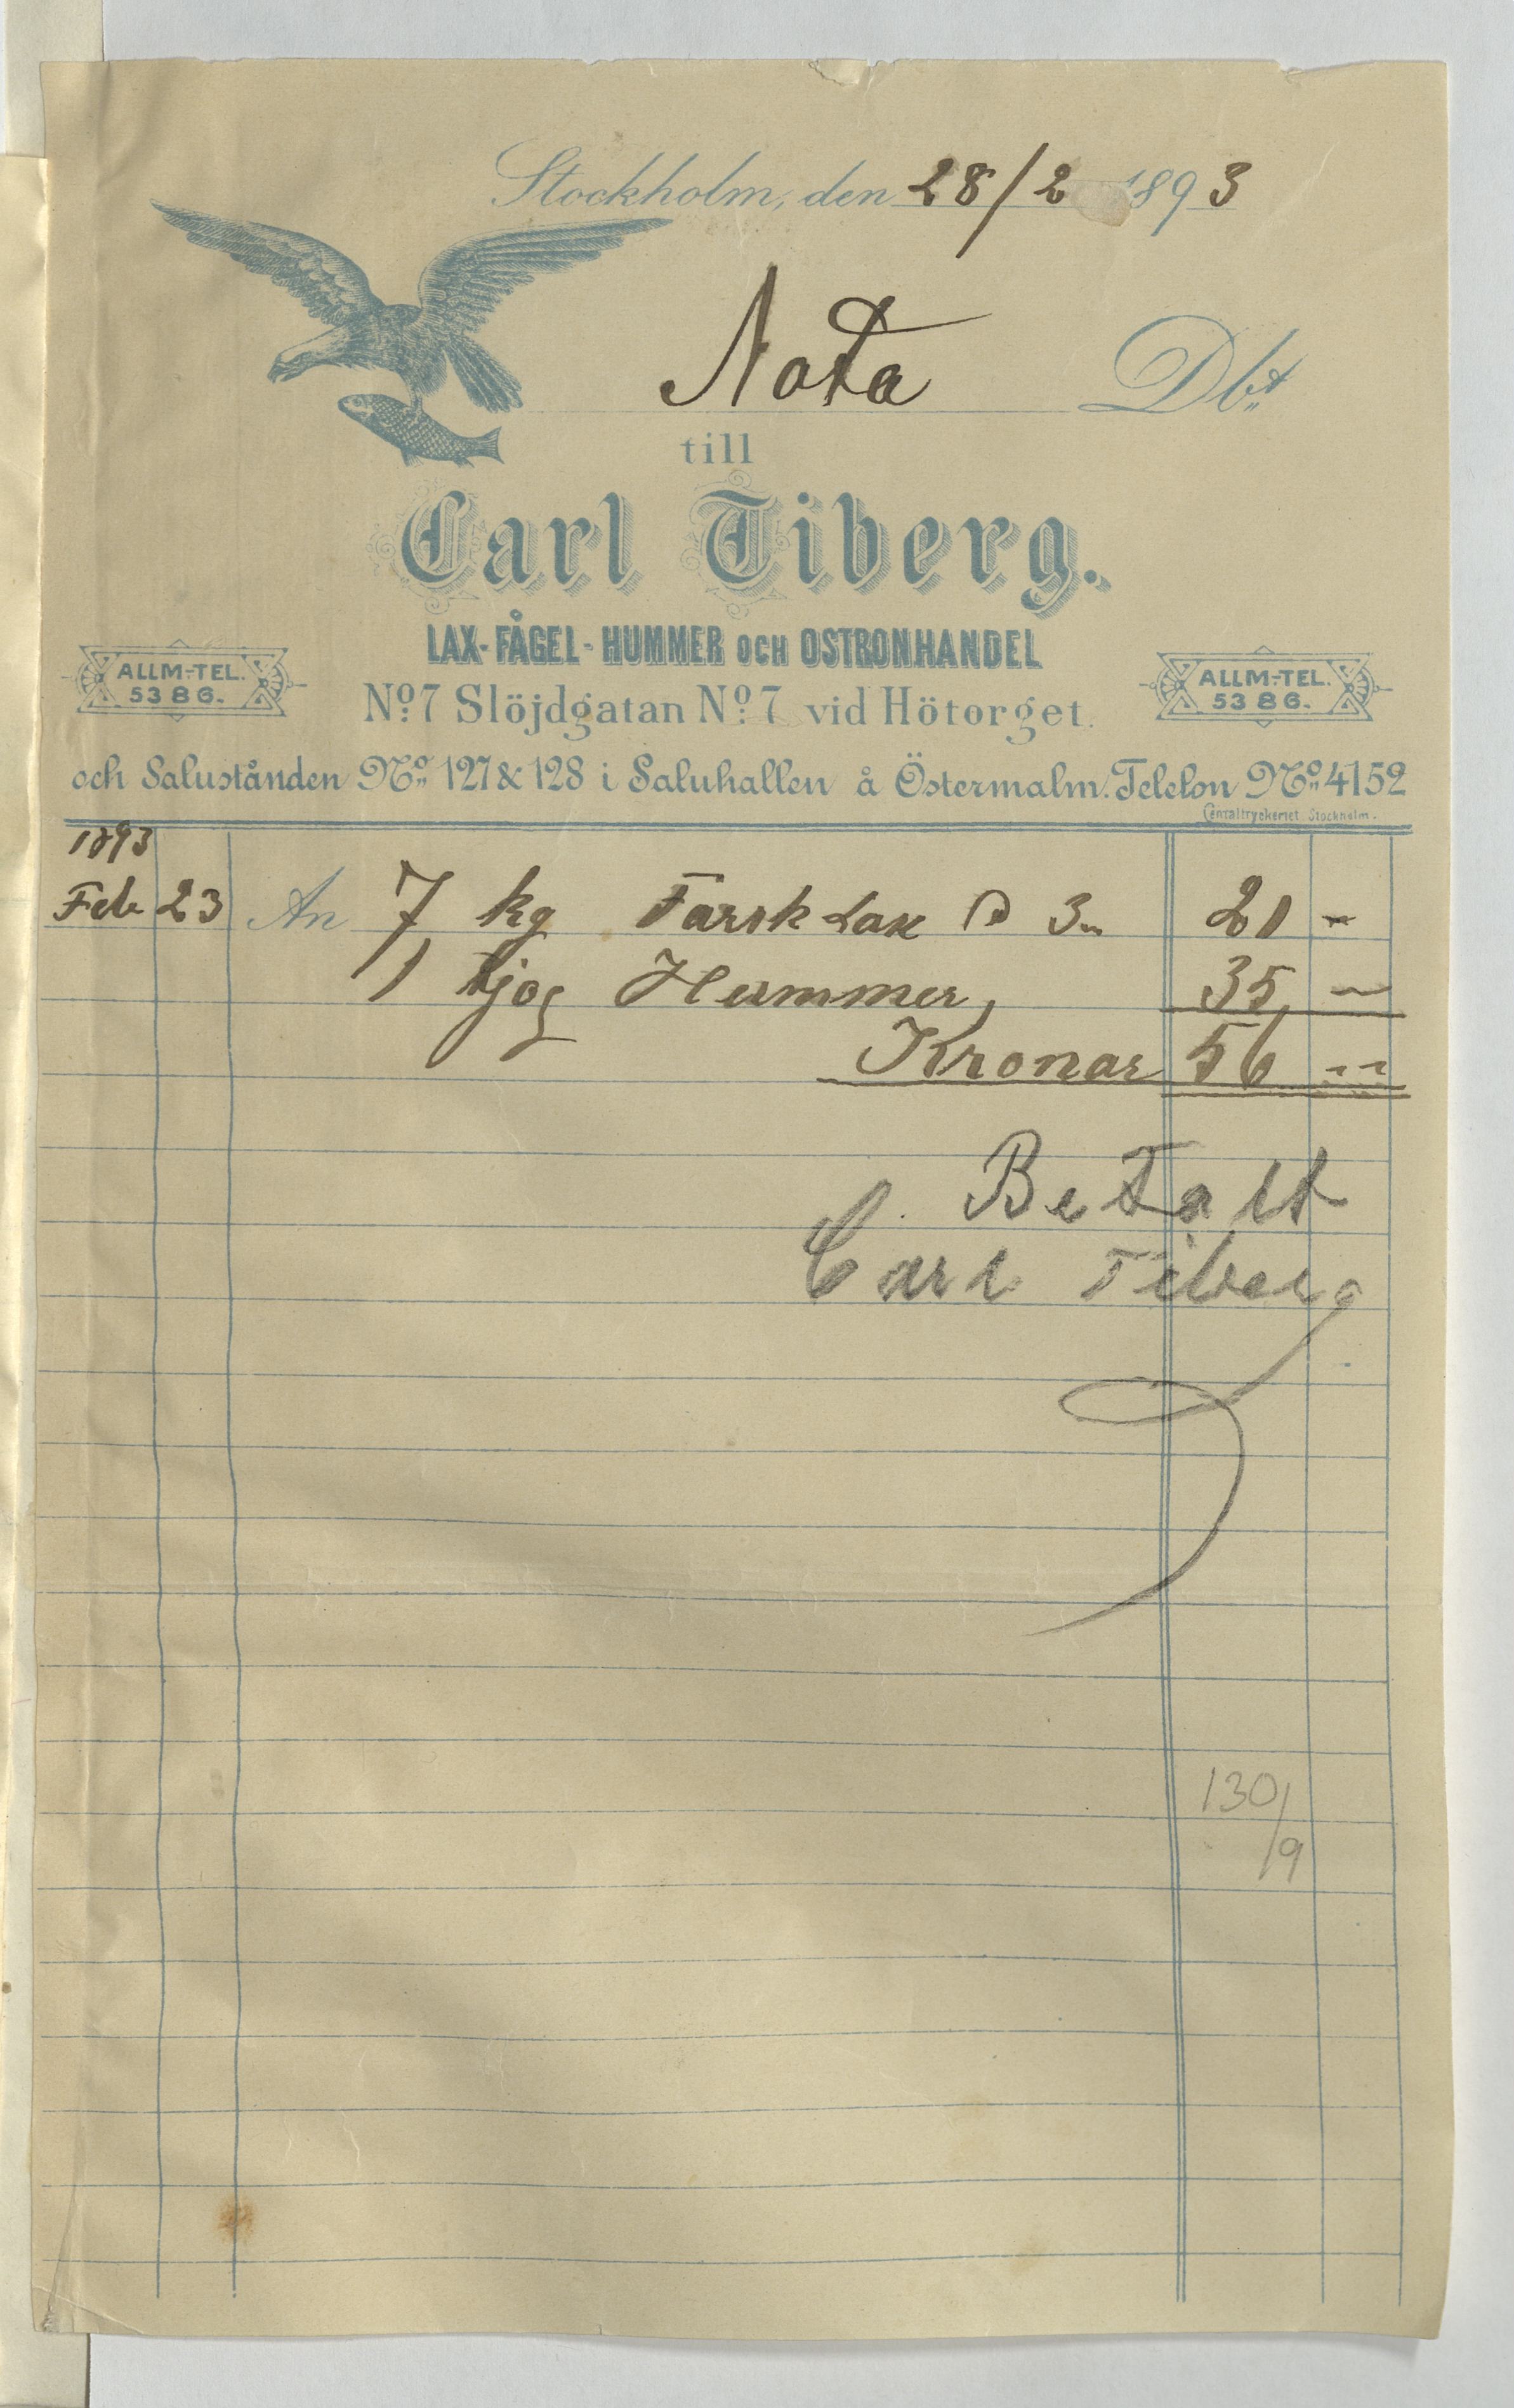 Stockholm, den 28/2 1893
Nota Dbt
till
Carl Tiberg.
LAX- FÅGEL- HUMMER OCH OSTRONHANDEL
ALLM-TEL. 5386.
No 7 Slöjdgatan No 7 vid Hötorget.
ALLM-TEL. 5386.
och Salustånden No 127 & 128 i Saluhallen å Östermalm. Telefon No 4152
Centraltryckeriet. Stockholm.
1893
Feb 23 An 7 kg Färsk Lax à 3„ 21 -
1 tjog Hummer, 35, -
Kronor 56 --
Betalt
Carl Tiberg
130/
/9